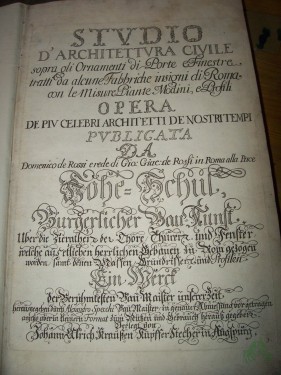 STVDIO
D'ARCHITETTVRA CIVILE
sopra gli Ornamenti di Porte e Finestre
tratti da alcune Fabbriche insigni di Roma
con le Misure Piante Modini, e Profili
OPERA
DE PIV CELEBRI ARCHITETTI DE NOSTRI TEMPI
PVBLICATA
DA
Domenico de Rossi erede di Gio: Giac: de Rossi in Roma alla Pace
Höhe-Schul,
Bürgerlicher Bau Kunst
Uber die Zierathen der Thore, Thüren, und Fenster
welche aus etlichen herrlichen Gebäuen zu Rom gezogen
worden, samt denen Maassen, Grundrissen, und Profilen
Ein Werck
der Berühmtesten Bau Meister unserer Zeit
Verlegt von
Johann Ulrich Kraussen Kupffer Stecher in Augspurg